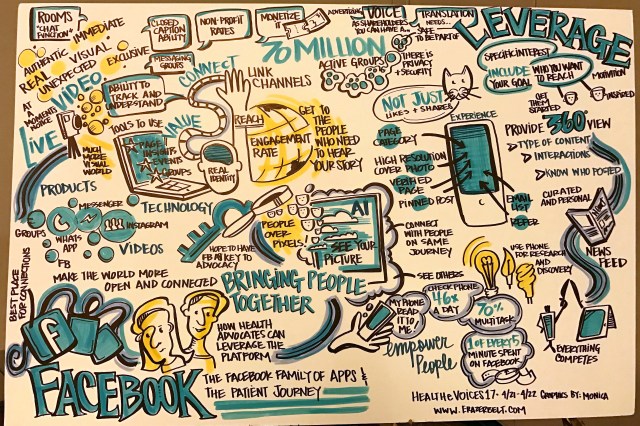 ROOMS
"CHAT
FUNCTION"
IMMEDIATE
AUTHENTIC
REAL VISUAL
UNEXPECTED
EXCLUSIVE
AT
MOMENTS
NOTICE
VIDEO
LIVE
MUCH
MORE
VISUAL
WORLD
CLOSED
CAPTION
ABILITY
NON-PROFIT
RATES
MONETIZE
IT
ADVERTISING
MESSAGING
GROUPS
ABILITY TO
TRACK AND
UNDERSTAND
TOOLS TO USE
PAGE
INSIGHTS
EVENTS
GROUPS
CONNECT
VALUE
REAL
IDENTITY
70 MILLION
ACTIVE GROUPS
LINK
CHANNELS
REACH
ENGAGEMENT
RATE
GET TO
THE
PEOPLE
WHO NEED
TO HEAR
YOUR STORY
VOICE
AS SHAREHOLDERS
YOU CAN HAVE A...
TRANSLATION
NEEDS...
SAFE
TO BE PART OF
THERE IS
PRIVACY
+ SECURITY
LEVERAGE
SPECIFIC INTEREST
INCLUDE WHO YOU WANT
YOUR GOAL TO REACH
MOTIVATION
GET
THEM
STARTED
INSPIRED
NOT JUST
LIKES + SHARES
EXPERIENCE
PAGE
CATEGORY
HIGH RESOLUTION
COVER PHOTO
VERIFIED
PAGE
PINNED POST
EMAIL
LIST
REFER
PROVIDE 360 VIEW
TYPE OF CONTENT
INTERACTIONS
KNOW WHO POSTED
CURATED
AND PERSONAL
NEWS
FEED
PRODUCTS
MESSENGER
GROUPS
WHATS
APP
INSTAGRAM
FB
VIDEOS
TECHNOLOGY
HOPE TO HAVE
FB AS KEY TO
ADVOCACY
PEOPLE
OVER
PIXELS!
AI
SEE YOUR
PICTURE
CONNECT WITH
PEOPLE ON
SAME
JOURNEY
SEE OTHERS
USE PHONE
FOR RESEARCH
AND
DISCOVERY
BEST PLACE
FOR CONNECTIONS
MAKE THE WORLD MORE
OPEN AND CONNECTED
BRINGING PEOPLE
TOGETHER
HOW HEALTH
ADVOCATES CAN
LEVERAGE THE
PLATFORM
MY PHONE
READ
IT TO
ME
CHECK PHONE
46x
A DAY
70%
MULTITASK
empower
People
1 OF EVERY 5
MINUTE SPENT
ON FACEBOOK
EVERYTHING
COMPETES
FACEBOOK
THE FACEBOOK FAMILY OF APPS &
THE PATIENT JOURNEY
HEALTHEVOICES17 - 4/21-4/22 GRAPHICS BY: MONICA
WWW.ERAZERBELT.COM